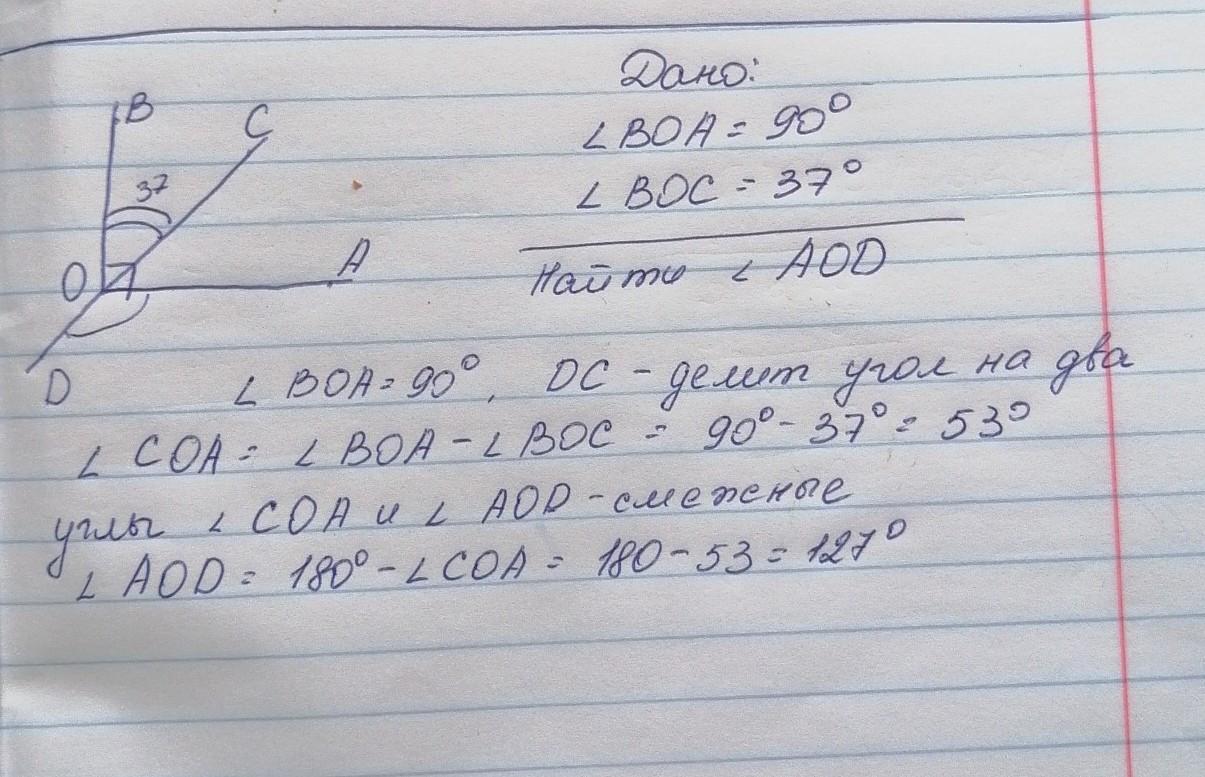 Дано:
B
C
∠ BOA = 90°
37
∠ BOC = 37°
O
A
Найти ∠ AOD
D
∠ BOA = 90°, DC - делит угол на два
∠ COA = ∠ BOA - ∠ BOC = 90° - 37° = 53°
углы ∠ COA и ∠ AOD - смежные
∠ AOD = 180° - ∠ COA = 180 - 53 = 127°